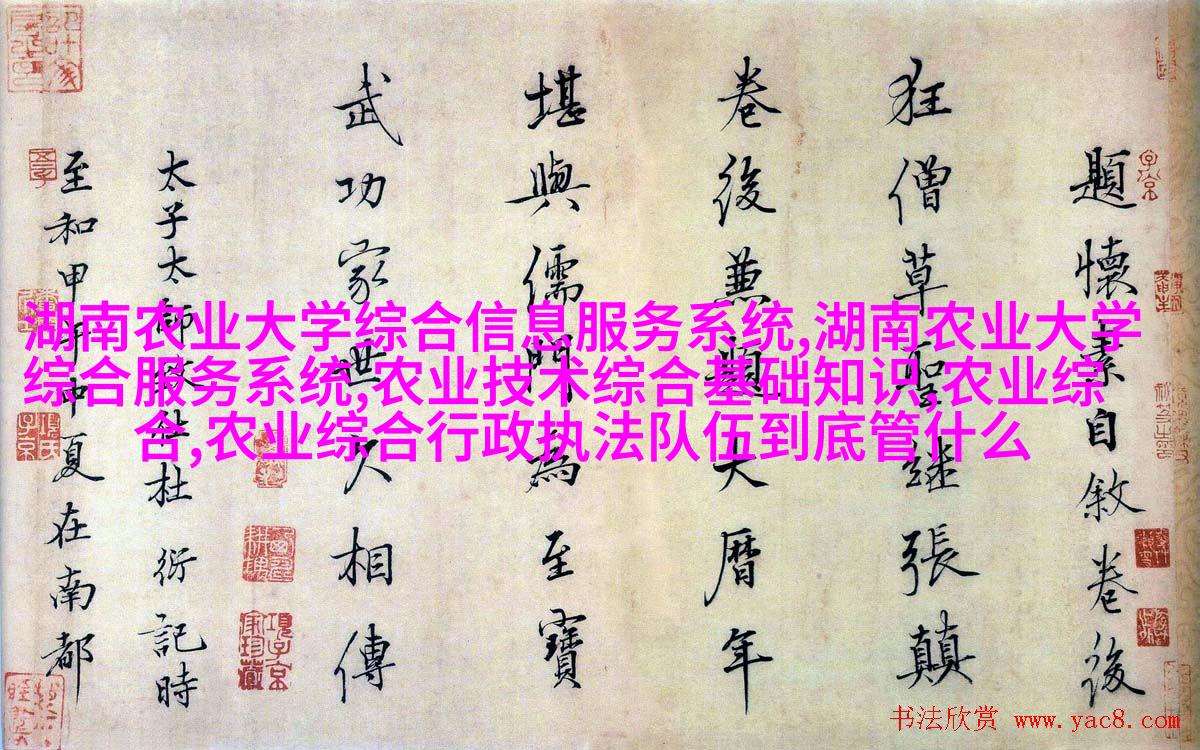 湖南农业大学综合信息服务系统,湖南农业大学
综合服务系统,农业技术综合基础知识,农业综
合,农业综合行政执法队伍到底管什么
題懷素自敘卷後
狂僧草聖继張顛
卷後兼題大曆年
堪與儒門為至寶
武功家世久相傳
太子太師致仕杜衍記時
至和甲午中夏在南都
书法欣赏 www.yac8.com